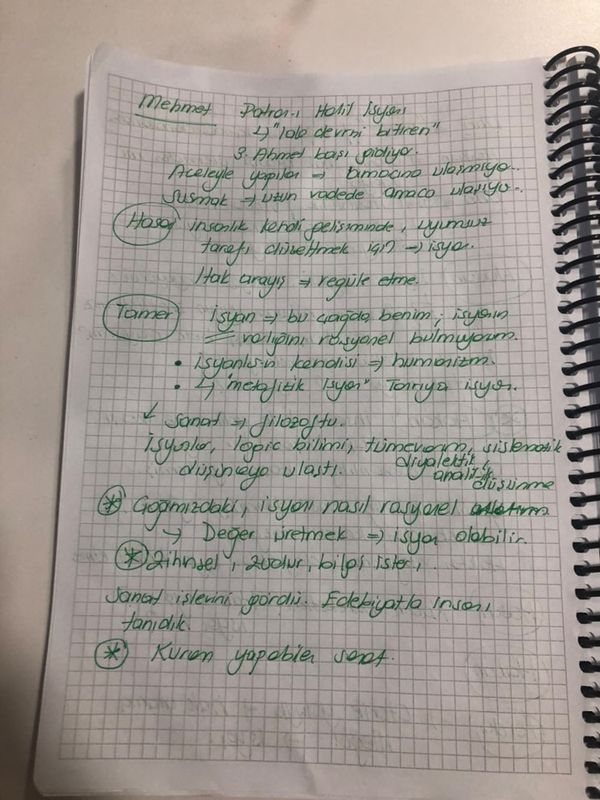 Mehmet Patrona Halil İsyanı
↳ "lale devrini bitiren"
3. Ahmet başı gidiyor.
Aceleyle yapılan ⇒ amacına ulaşmıyor.
Susmak → uzun vadede amaca ulaşıyor.
insanlık kendi gelişiminde, uyumsuz
tarafı düzeltmek için → isyan.
Hak arayış → regüle etme.
Tamer İsyan ⇒ bu çağda benim, isyanın
varlığını rasyonel bulmuyorum.
• isyanlığın kendisi ⇒ humanizm.
• ↳ "metafizik isyan" Tanrıya isyan.
Sanat ⇒ filozoftu.
isyanlar, logic bilimi, tümevarım, sistematik
düşünceye ulaştı. diyalektik,
analitik
düşünme
* Çağımızdaki, isyanı nasıl rasyonel
→ Değer üretmek ⇒ isyan olabilir.
* Zihinsel, zordur, bilgi ister,
Sanat işlevini gördü. Edebiyatla insanı
tanıdık.
* Kuram yapabilen sanat.